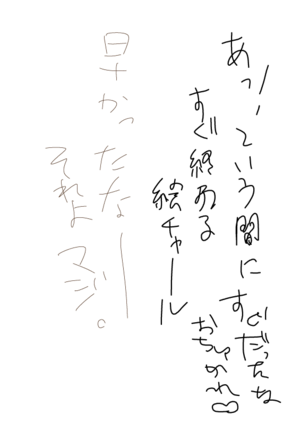 あっ!という間に
すぐだったな
おちゅかれ
すぐ終わる
絵チャール
早かったなー
それよ
マジ。